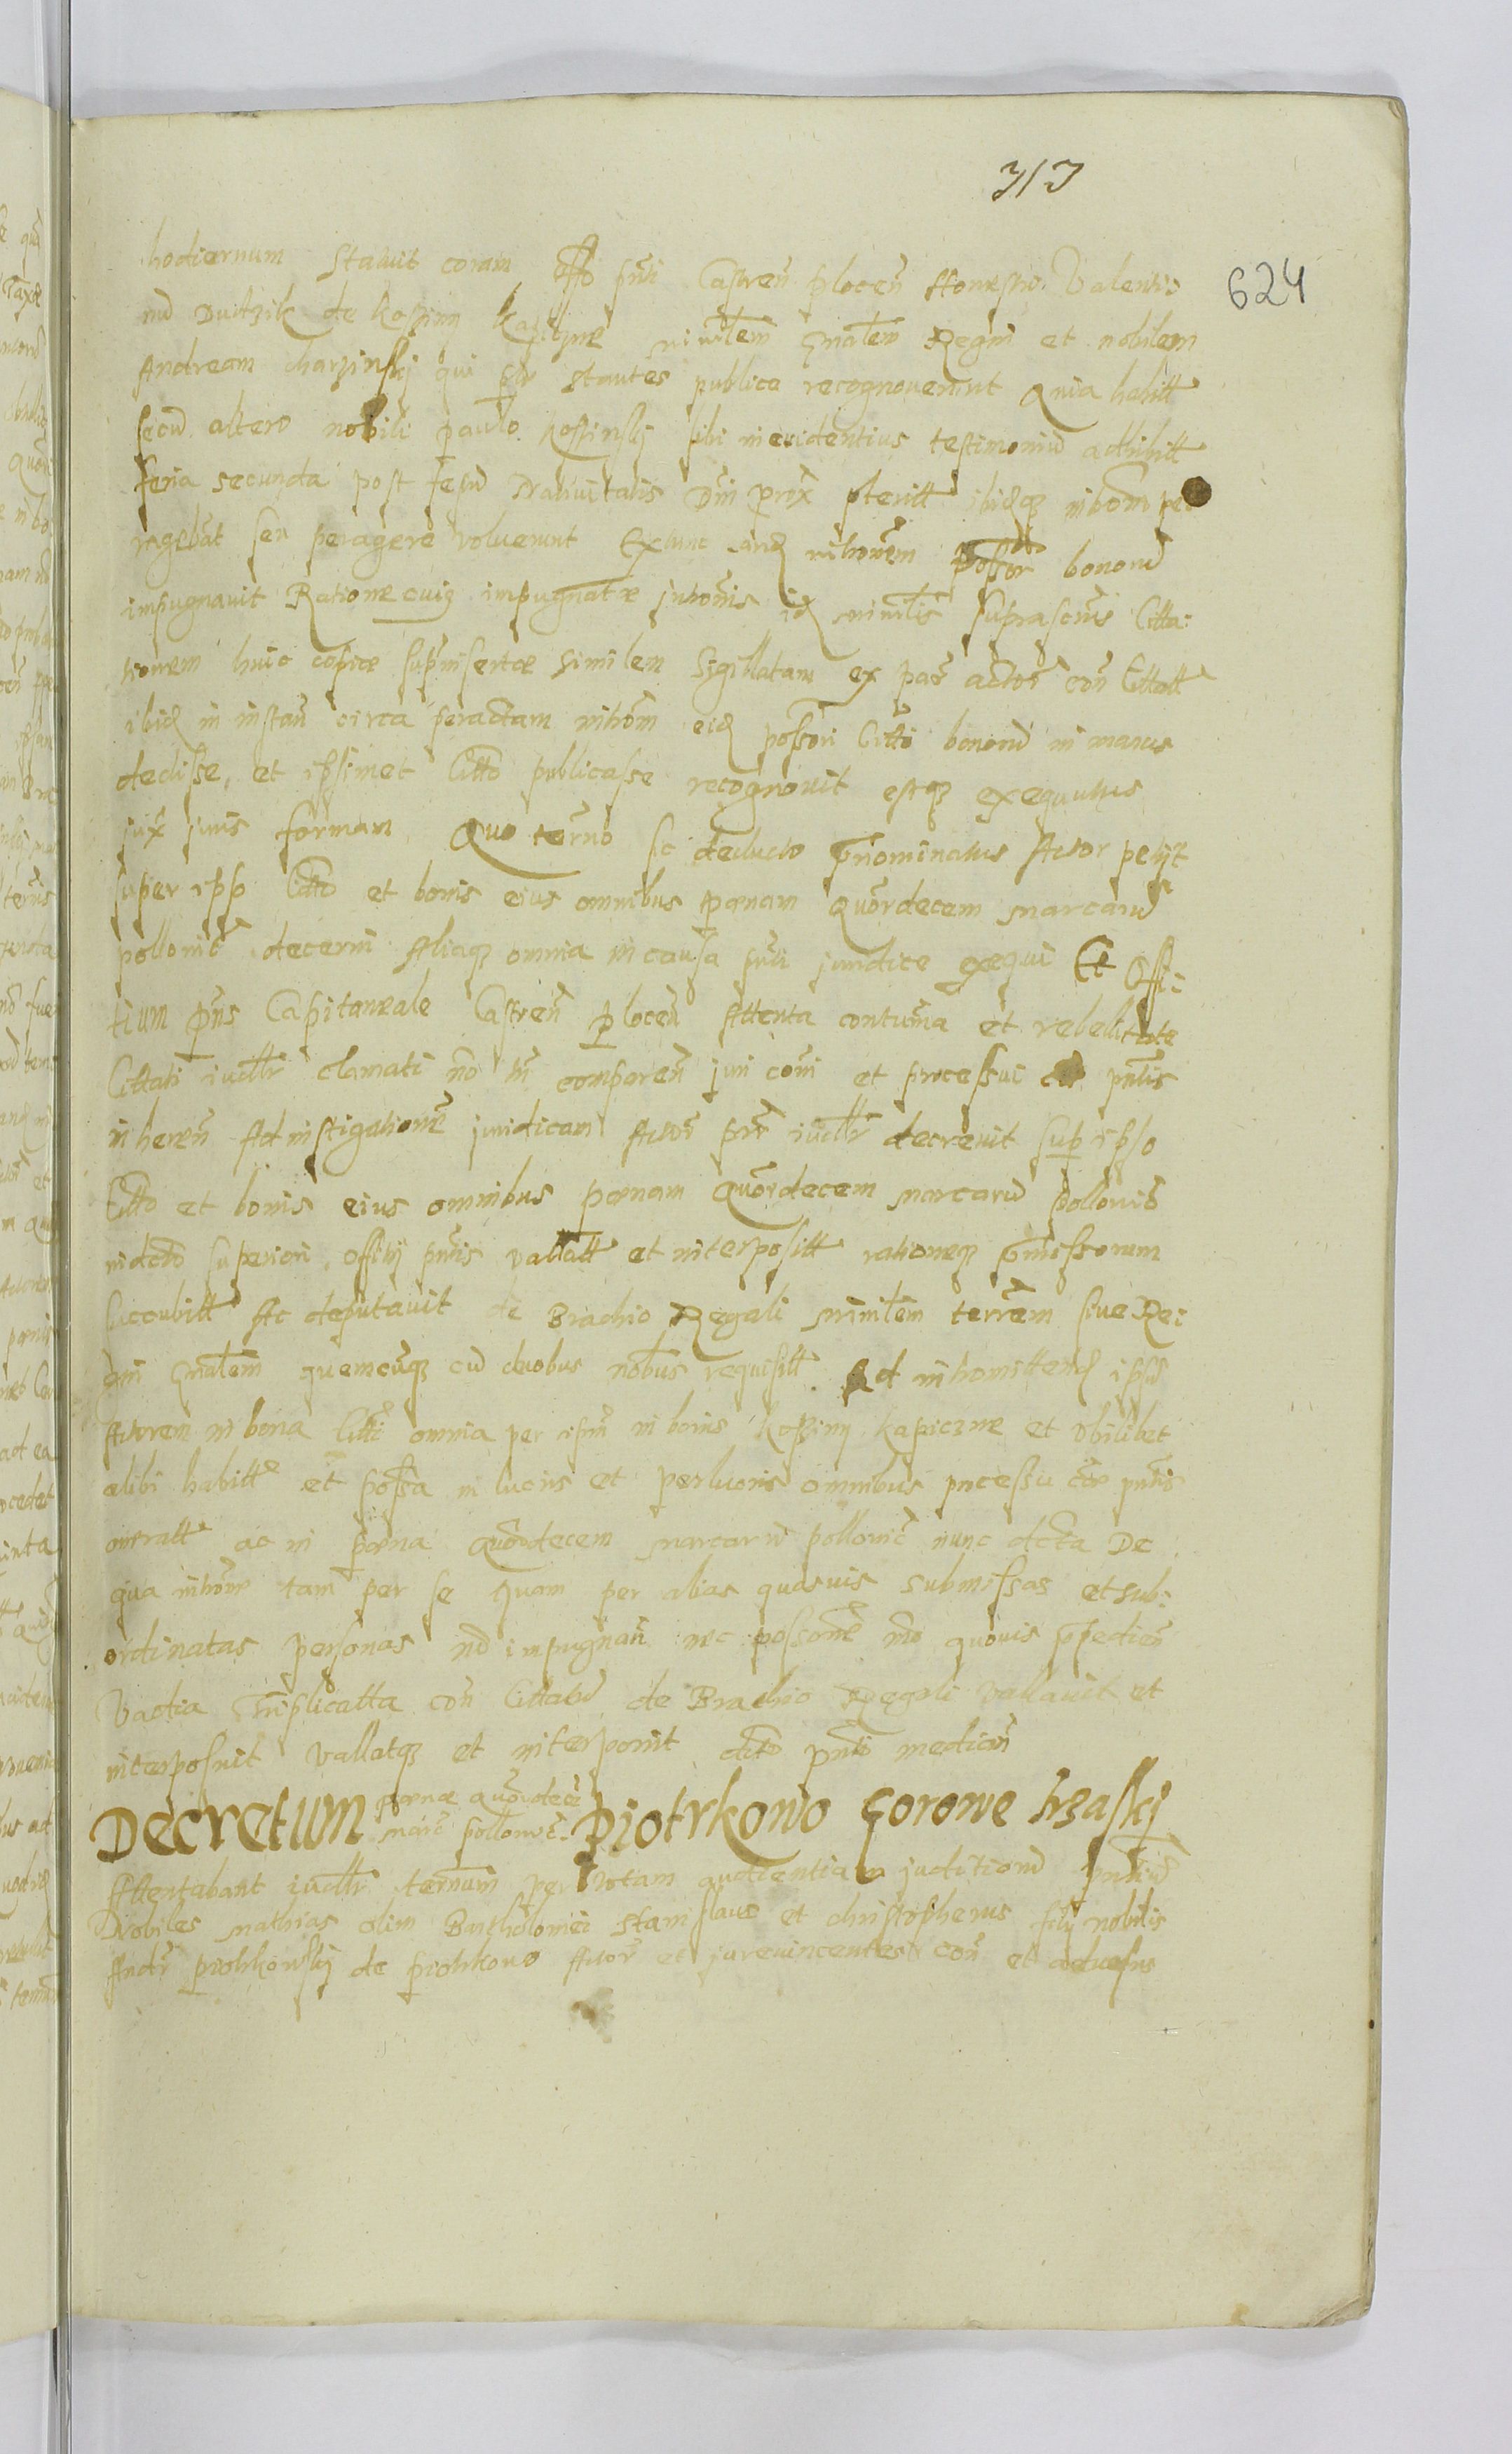 313
624
hodiernum statuit coram Offo pnti Castren plocen Honestu. Valenti:
nu Duitzik de Koszinÿ Kapiczne minrlem Gnalem Regni et nobilem
Andream charzinskj qui stantes publice recognouerunt Quia habitt
secu altero nobili paulo Koszinskj sibi in euidentius testimoniu adhibitt
feria secunda post festu Natiuitatis Dni prox pteritt ibidq inhom pe
ragebat seu peragere voluerunt Extunc inhonem possor bonoru
impugnauit Ratione cuiq impugnatæ inhonis id minrlis suprascrius Citta:
tionem huic copiæ suprinsertæ similem sigillatam ex parte actor con Cittatt
ibid in instan circa peractam inhom eid possori Citto bonoru in manus
dedisse, et ipsimet Citto publicasse recognouit estq exequutus
jux juris formam. Quo termo sic deducto pnominatus Actor petijt
super ipso Citto et bonis eius omnibus pœnam Quordecem marcaru
pollonic decerni Aliaq omnia in causa pnti juridice exequi Et Offi:
tium pns Capitaneale Castren plocen Attenta contuma et rebellitate
Cittati iudllr clamati no tn comparen juri coni et processui pntis
inheren Ad instigatione juridicam Actor pntr iudllr decreuit sup ipso
Citto et bonis eius omnibus pœnam Quordecem marcaru pollonic
indcto superiori offitij pntis vallatt et interpositt rationeq pmissorum
succubitt Ac deputauit de Brachio Regali minrlem terrem siue Re:
gni Gnalem quemcuq cu duobus nobus requisitt. Ad inhomittend ipsu
Actorem in bona Citti omnia per ipm in bonis Koszinÿ Kapiczne et vbilibet
alibi habitt et possa in lucris et perlucris omnibus processu pntis
contratt ac in pœna Quordecem marcaru pollonic nunc dcta De
qua inhone tam per se quam per alias quasuis submissas et sub:
ordinatas personas no impugnari nec possone mo quouis ppedien
Vadia triplicatta con Cittatu de Brachio Regali vallauit et
interposuit vallatq et interponit dcto pnti median
Decretum pœnæ quordece marc pollonic. Piotrkowo Gorowe trzaskj
Attentabant iudllr termum per totam audientiam juditioru pntiu
Nobiles mathias olim Bartholomei stanislaus et christopherus filij nobilis
Andr piotrkowskj de piotrkowo Actor et jureuincentes con et aduersus